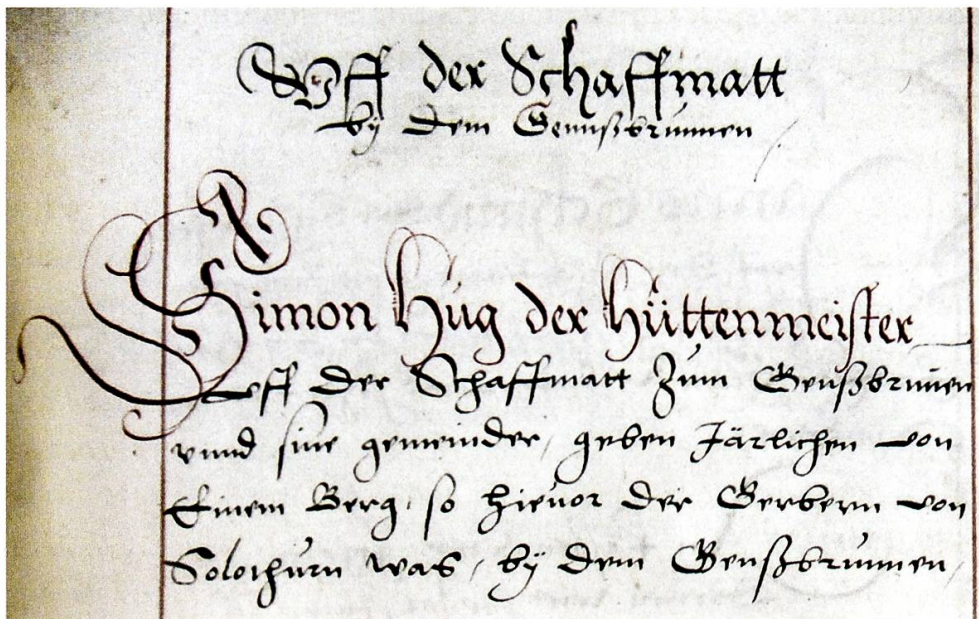 Vff der Schaffmatt
by dem Gennßbrunnen
Simon Hug der Hüttenmeister
vff der Schaffmatt Zum Genßbrunnen
vnnd sine gemeinder, geben Järlichen von
Einem Berg, so hieuor der Gerbern von
Solothurn was, by dem Genßbrunnen,